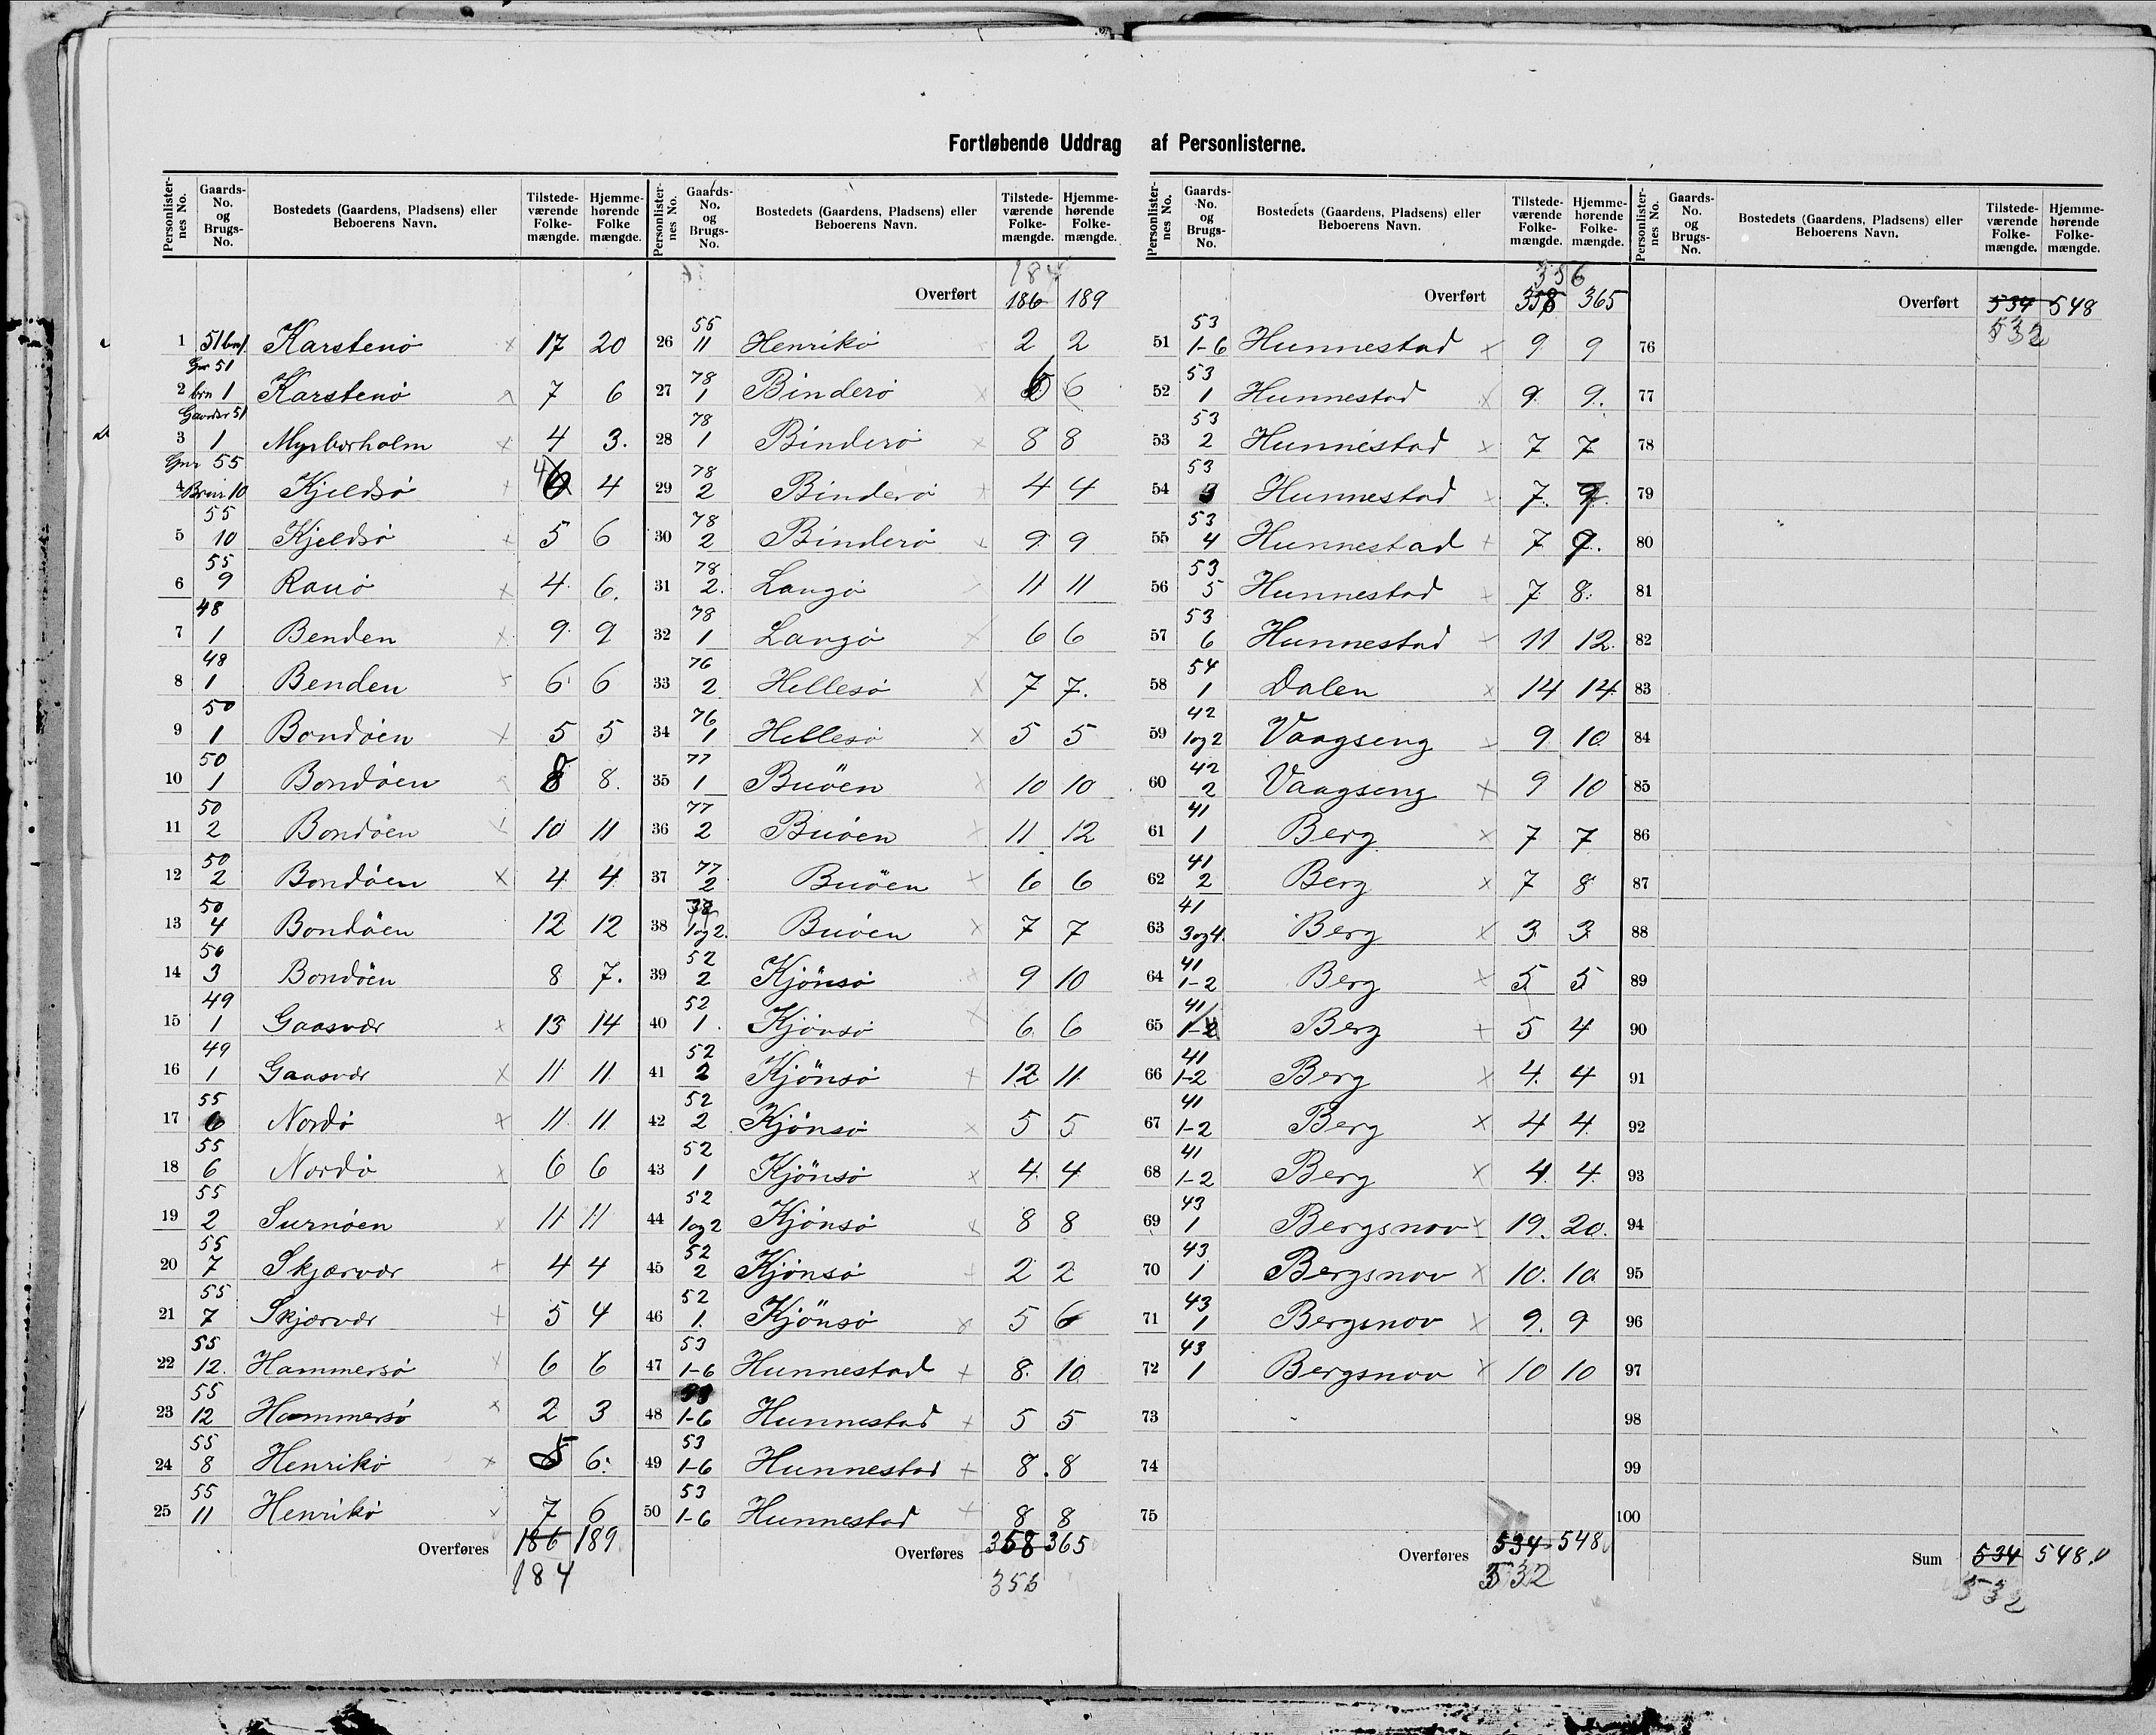 Fortløbende Uddrag af Personlisterne.
Personlister-nes No. | Gaards-No. og Brugs-No. | Bostedets (Gaardens, Pladsens) eller Beboerens Navn. | Tilstede-værende Folke-mængde. | Hjemme-hørende Folke mængde.
1 51 bn 1. Karstenö × 17 20
2 Gnr 51 brn 1 Karstenö 7 6
3 Gaardsr 51 1 Myrbærholm × 4 3.
4 Gnr 55 Brnr 10 Kjeldsö 4 4
5 55 10 Kjeldsö 5 6
6 55 9 Rauö × 4 6.
7 48 1 Benden × 9 9
8 48 1 Benden 6 6
9 50 1 Bondöen × 5 5
10 50 1 Bondöen 8 8.
11 50 2 Bondöen 10 11
12 50 2 Bondöen × 4 4
13 50 4 Bondöen 12 12
14 50 3 Bondöen 8 7.
15 49 1 Gaasvær × 13 14
16 49 1 Gaasvær × 11 11
17 55 6 Nordö × 11 11
18 55 6 Nordö × 6 6
19 55 2 Surnöen × 11 11
20 55 7 Skjærvær 4 4
21 55 7 Skjærvær 5 4
22 55 12. Hammersö × 6 6
23 55 12 Hammersö × 2 3
24 55 8 Henrikö × 5 6.
25 55 11 Henrikö × 7 6
Overføres 186 189
184
Personlister-nes No. | Gaards-No. og Brugs-No. | Bostedets (Gaardens, Pladsens) eller Beboerens Navn. | Tilstede-værende Folke-mængde. | Hjemme-hørende Folke-mængde.
184
Overført 186 189
26 55 11 Henrikö 2 2
27 78 1 Binderö × 6 6
28 78 1 Binderö × 8 8
29 78 2 Binderö × 4 4
30 78 2 Binderö × 9 9
31 78 2. Langö 11 11
32 78 1 Langö × 6 6
33 76 2 Hellesö × 7 7.
34 76 1 Hellesö × 5 5
35 77 1 Buöen × 10 10
36 77 2 Buöen 11 12
37 77 2 Buöen 6 6
38 1og2. Buöen × 7 7
39 52 2 Kjönsö 9 10
40 52 1. Kjönsö × 6 6
41 52 2 Kjönsö 12 11
42 52 2 Kjönsö × 5 5
43 52 1 Kjönsö × 4 4
44 52 1og2 Kjönsö × 8 8
45 52 2 Kjönsö 2 2
46 52 1. Kjönsö × 5 6
47 53 1-6 Hunnestad + 8 10
48 53 1-6 Hunnestad + 5 5
49 53 1-6 Hunnestad + 8. 8
50 53 1-6 Hunnestad + 8 8
Overføres 358 365
356
Personlister-nes No. | Gaards-No. og Brugs-No. | Bostedets (Gaardens, Pladsens) eller Beboerens Navn. | Tilstede-værende Folke-mængde. | Hjemme-hørende Folke-mængde.
356
Overført 358 365
51 53 1-6 Hunnestad × 9 9
52 53 1 Hunnestad × 9 9.
53 53 2 Hunnestad × 7 7
54 53 3 Hunnestad × 7. 9.
55 53 4 Hunnestad + 7 9.
56 53 5 Hunnestad 7 8.
57 53 6 Hunnestad 11 12.
58 54 1 Dalen × 14 14
59 42 1og2 Vaagseng 9 10
60 42 2 Vaagseng × 9 10
61 41 1 Berg × 7 7
62 41 2 Berg × 7 8
63 41 3og4. Berg × 3 3
64 41 1-2 Berg × 5 5
65 41 Berg + 5 4
66 41 1-2 Berg × 4. 4
67 41 1-2 Berg × 4 4
68 41 1-2 Berg × 4 4.
69 43 1 Bergsnov × 19. 20.
70 43 1 Bergsnov × 10. 10
71 43 1 Bergsnov × 9. 9
72 43 1 Bergsnov × 10 10
73
74
75
Overføres 534 548
532
Personlister-nes No. | Gaards-No. og Brugs-No. | Bostedets (Gaardens, Pladsens) eller Beboerens Navn. | Tilstede-værende Folke-mængde. | Hjemme-hørende Folke-mængde.
Overført 534 548
532
76
77
78
79
80
81
82
83
84
85
86
87
88
89
90
91
92
93
94
95
96
97
98
99
100
Sum 534 548.
532